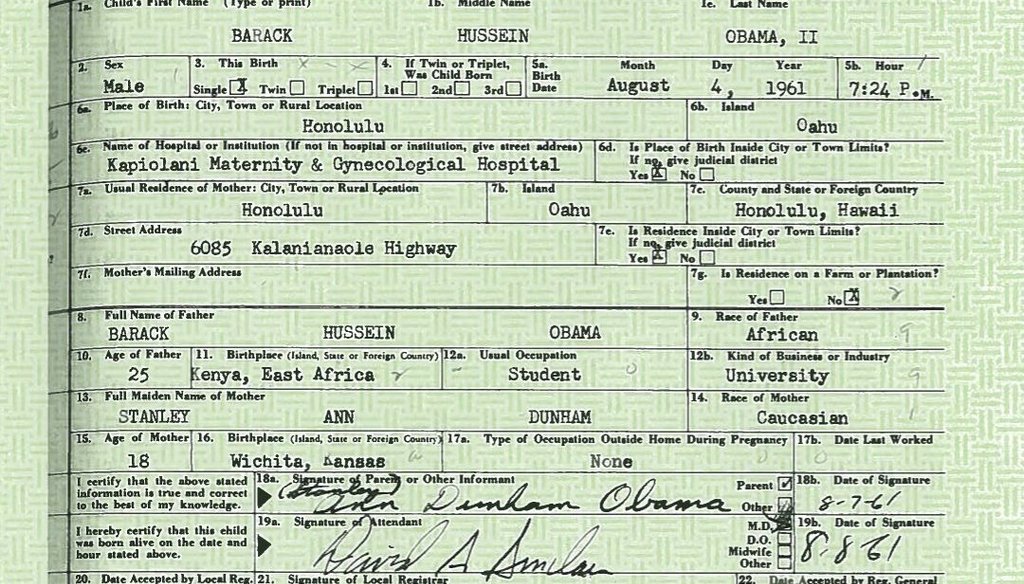 1a. Child's First Name (Type or print) 1b. Middle Name 1c. Last Name
BARACK HUSSEIN OBAMA, II
2. Sex 3. This Birth 4. If Twin or Triplet, Was Child Born 5a. Birth Date Month Day Year 5b. Hour
Male Single X Twin Triplet 1st 2nd 3rd August 4, 1961 7:24 P.M.
6a. Place of Birth: City, Town or Rural Location 6b. Island
Honolulu Oahu
6c. Name of Hospital or Institution (If not in hospital or institution, give street address) 6d. Is Place of Birth Inside City or Town Limits?
If no, give judicial district
Kapiolani Maternity & Gynecological Hospital Yes X No
7a. Usual Residence of Mother: City, Town or Rural Location 7b. Island 7c. County and State or Foreign Country
Honolulu Oahu Honolulu, Hawaii
7d. Street Address 7e. Is Residence Inside City or Town Limits?
If no, give judicial district
6085 Kalanianaole Highway Yes X No
7f. Mother's Mailing Address 7g. Is Residence on a Farm or Plantation?
Yes No X
8. Full Name of Father 9. Race of Father
BARACK HUSSEIN OBAMA African
10. Age of Father 11. Birthplace (Island, State or Foreign Country) 12a. Usual Occupation 12b. Kind of Business or Industry
25 Kenya, East Africa Student University
13. Full Maiden Name of Mother 14. Race of Mother
STANLEY ANN DUNHAM Caucasian
15. Age of Mother 16. Birthplace (Island, State or Foreign Country) 17a. Type of Occupation Outside Home During Pregnancy 17b. Date Last Worked
18 Wichita, Kansas None
I certify that the above stated information is true and correct to the best of my knowledge. 18a. Signature of Parent or Other Informant Parent Other 18b. Date of Signature
(Stanley) Ann Dunham Obama 8-7-61
I hereby certify that this child was born alive on the date and hour stated above. 19a. Signature of Attendant M.D. D.O. Midwife Other 19b. Date of Signature
David A Sinclair 8-8-61
20. Date Accepted by Local Reg. 21. Signature of Local Registrar 22. Date Accepted by Reg. General